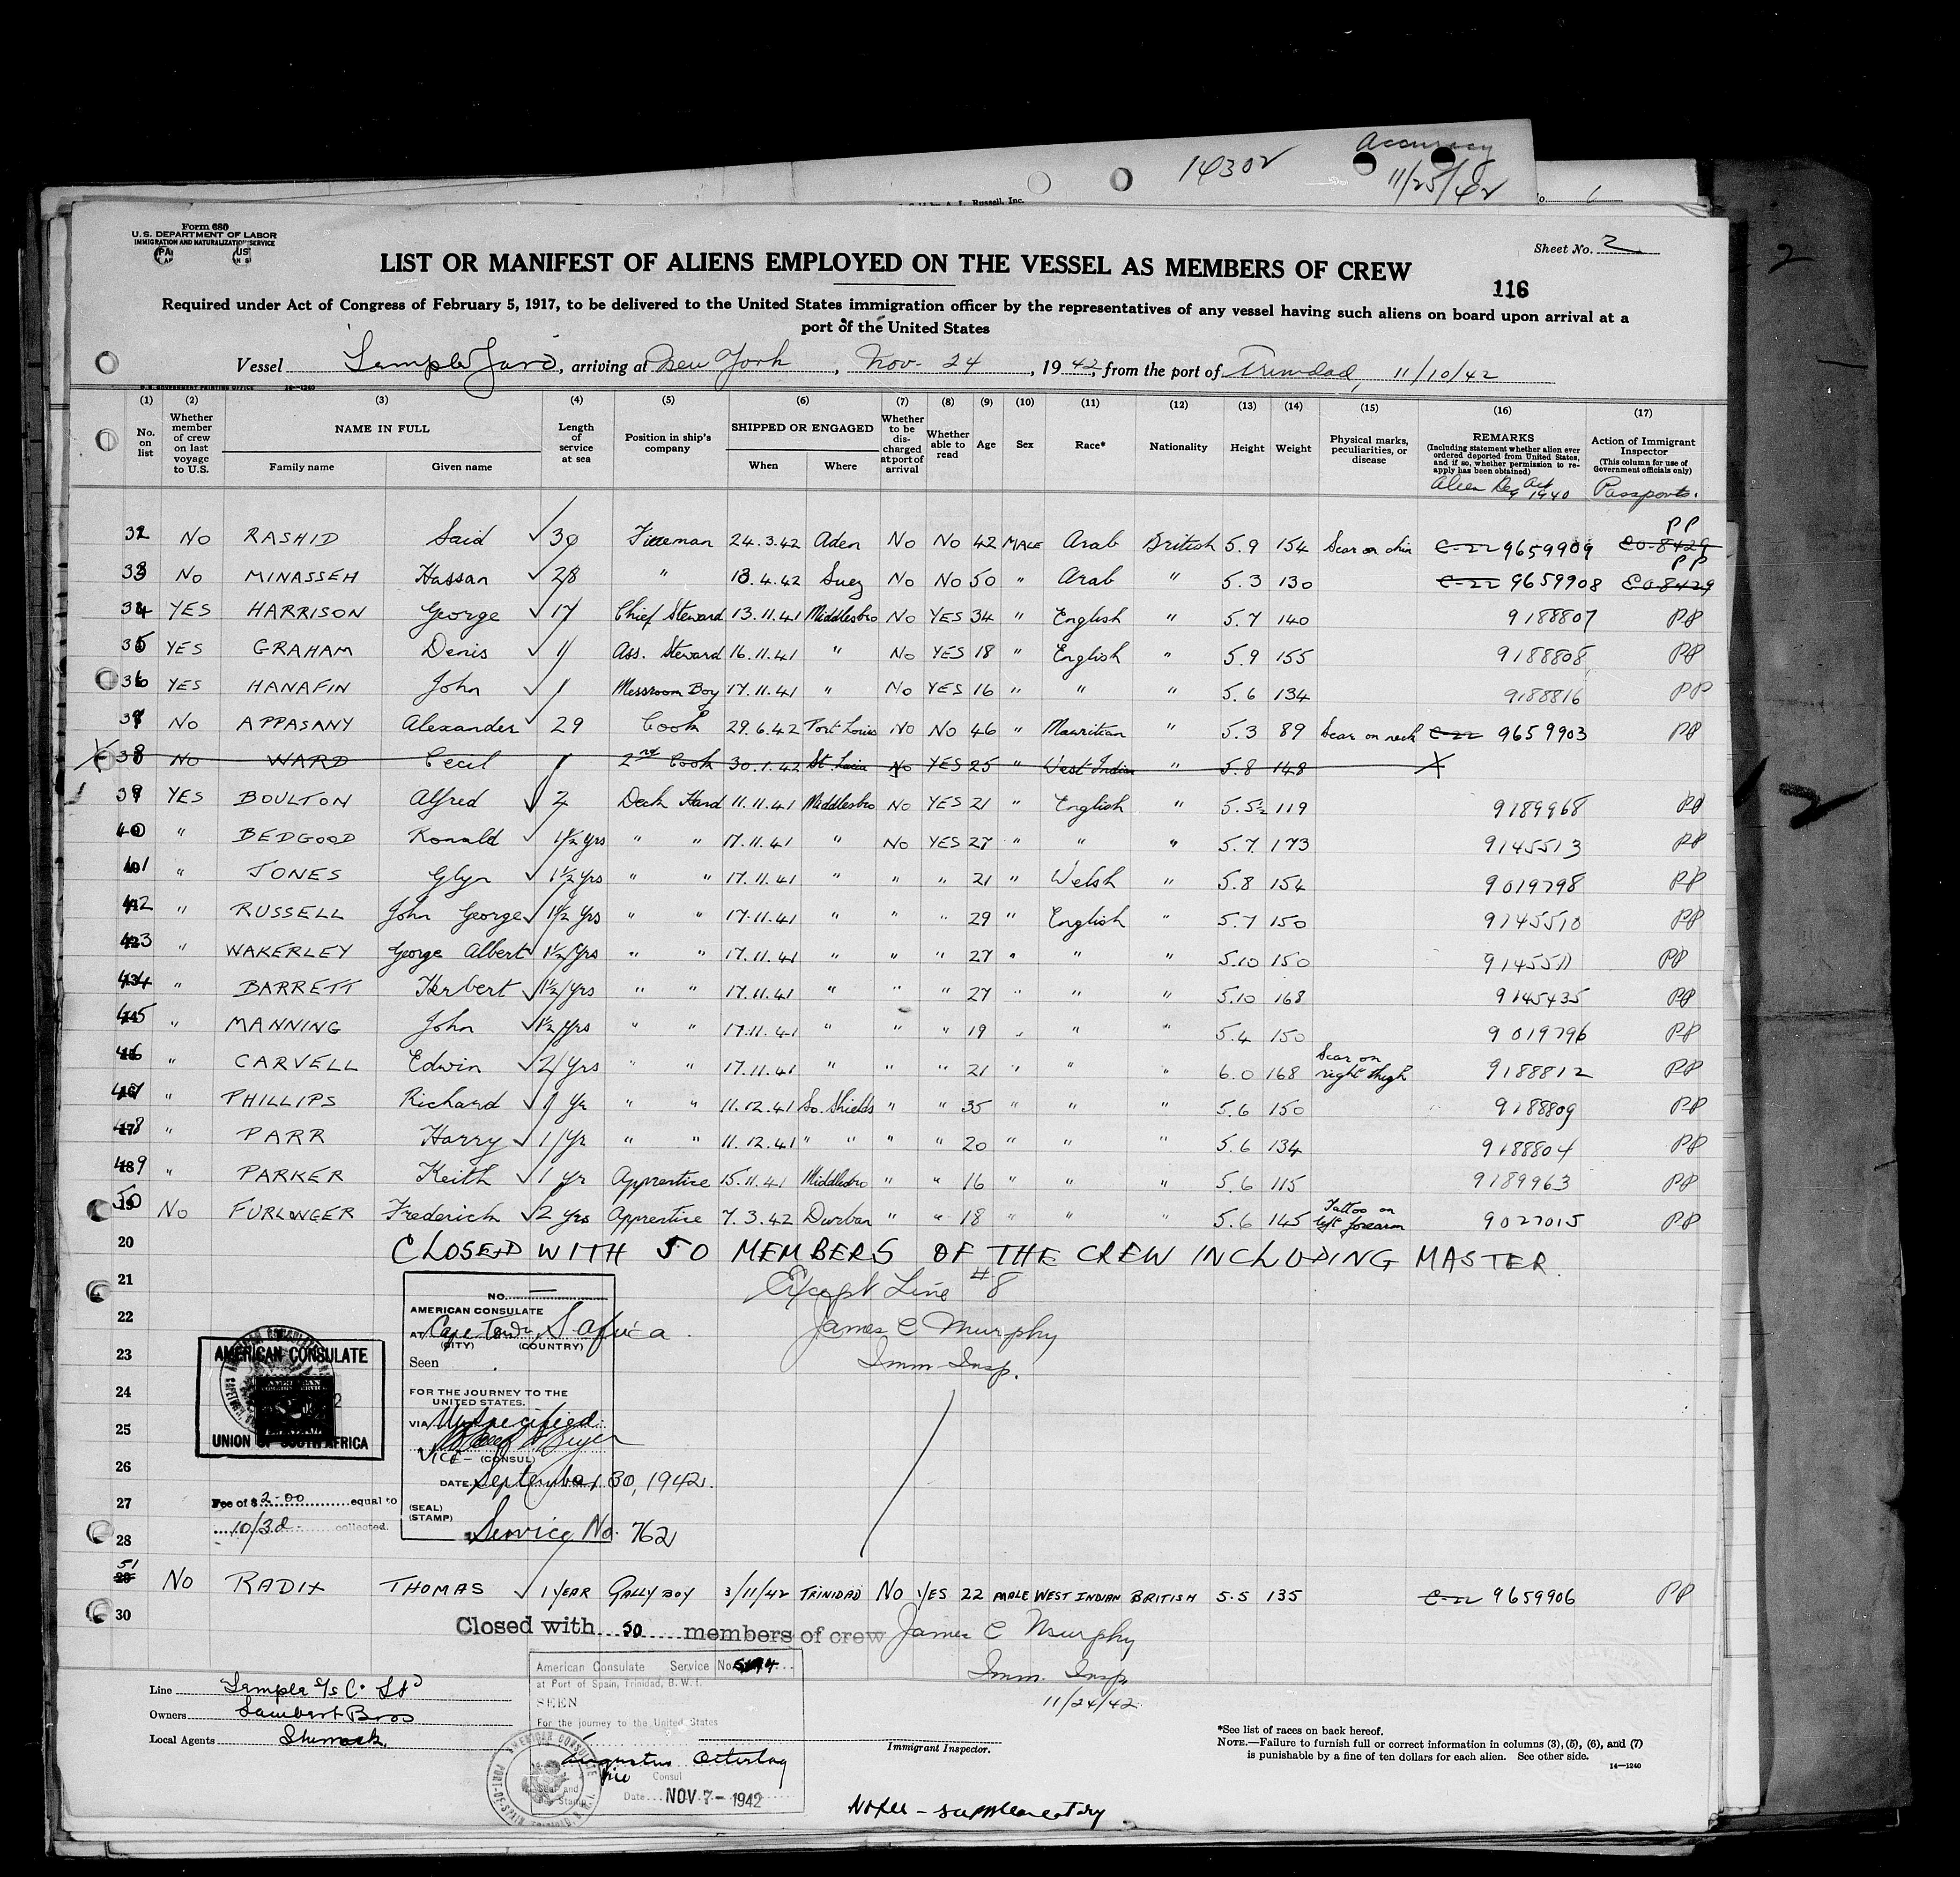 14302
Accuracy
11/25/42
A. L. Russell, Inc.
6
Form 680
U.S. DEPARTMENT OF LABOR
IMMIGRATION AND NATURALIZATION SERVICE
Sheet No. 2
LIST OR MANIFEST OF ALIENS EMPLOYED ON THE VESSEL AS MEMBERS OF CREW
116
Required under Act of Congress of February 5, 1917, to be delivered to the United States immigration officer by the representatives of any vessel having such aliens on board upon arrival at a
port of the United States
Vessel Temple Yard, arriving at New York, Nov. 24, 1942, from the port of Trinidad, 11/10/42
U.S. GOVERNMENT PRINTING OFFICE 14—1240
(1) (2) (3) (4) (5) (6) (7) (8) (9) (10) (11) (12) (13) (14) (15) (16) (17)
No. on list
Whether member of crew on last voyage to U.S.
NAME IN FULL
Family name Given name
Length of service at sea
Position in ship's company
SHIPPED OR ENGAGED
When Where
Whether to be discharged at port of arrival
Whether able to read
Age Sex Race* Nationality Height Weight
Physical marks, peculiarities, or disease
REMARKS
(Including statement whether alien ever ordered deported from United States, and if so, whether permission to reapply has been obtained)
Alien Reg Act 1940
Action of Immigrant Inspector
(This column for use of Government officials only)
Passports.
32 No RASHID Said 30 Fireman 24.3.42 Aden No No 42 MALE Arab British 5.9 154 Scar on chin C-22 9659909 EO-8429 PP
33 No MINASSEH Hassan 28 " 13.4.42 Suez No No 50 " Arab " 5.3 130 C-22 9659908 EO-8429 PP
34 YES HARRISON George 17 Chief Steward 13.11.41 Middlesbro No YES 34 " English " 5.7 140 9188807 PP
35 YES GRAHAM Denis 1 Ass. Steward 16.11.41 " No YES 18 " English " 5.9 155 9188808 PP
36 YES HANAFIN John 1 Messroom Boy 17.11.41 " No YES 16 " " " 5.6 134 9188816 PP
37 No APPASANY Alexander 29 Cook 29.6.42 Port Louis No No 46 " Mauritian " 5.3 89 Scar on neck C-22 9659903 PP
X 38 No WARD Cecil 1 2nd Cook 30.1.42 St. Lucia No YES 25 " West Indian " 5.8 148 X
39 YES BOULTON Alfred 2 Deck Hand 11.11.41 Middlesbro No YES 21 " English " 5.5½ 119 9189968 PP
40 " BEDGOOD Ronald 1½ yrs " " 17.11.41 " No YES 27 " " " 5.7 173 9145513 PP
41 " JONES Glyn 1½ yrs " " 17.11.41 " " " 21 " Welsh " 5.8 154 9019798 PP
42 " RUSSELL John George 1½ yrs " " 17.11.41 " " " 29 " English " 5.7 150 9145510 PP
43 " WAKERLEY George Albert 1½ yrs " " 17.11.41 " " " 27 " " " 5.10 150 9145511 PP
44 " BARRETT Herbert 1½ yrs " " 17.11.41 " " " 27 " " " 5.10 168 9145435 PP
45 " MANNING John 1½ yrs " " 17.11.41 " " " 19 " " " 5.4 150 9019796 PP
46 " CARVELL Edwin 2 yrs " " 17.11.41 " " " 21 " " " 6.0 168 Scar on right thigh 9188812 PP
47 " PHILLIPS Richard 1 yr " " 11.12.41 So. Shields " " 35 " " " 5.6 150 9188809 PP
48 " PARR Harry 1 yr " " 11.12.41 " " " " 20 " " " 5.6 134 9188804 PP
49 " PARKER Keith 1 yr Apprentice 15.11.41 Middlesbro " " 16 " " " 5.6 115 9189963 PP
50 No FURLONGER Frederick 2 yrs Apprentice 7.3.42 Durban " " 18 " " " 5.6 145 Tattoo on left forearm 9027015 PP
20 CLOSED WITH 50 MEMBERS OF THE CREW INCLUDING MASTER.
21 Except Line #8
22 James C Murphy
23 Imm. Insp.
24
25
26
27
28
NO. —
AMERICAN CONSULATE
AT Cape Town, S Africa.
(CITY) (COUNTRY)
Seen
FOR THE JOURNEY TO THE
UNITED STATES.
VIA Unspecified
VICE- (CONSUL)
DATE September 30, 1942.
(SEAL)
(STAMP)
Service No. 762
AMERICAN CONSULATE
UNION OF SOUTH AFRICA
Fee of $ 2.00 equal to
10/3d. collected.
51 No RADIX THOMAS 1 YEAR GALLY BOY 3/11/42 TRINIDAD No YES 22 MALE WEST INDIAN BRITISH 5.5 135 C-22 9659906 PP
30
Closed with 50 members of crew James C Murphy
Imm. Insp
11/24/42
American Consulate Service No.
at Port of Spain, Trinidad, B.W.I.
SEEN
For the journey to the United States
Augustus Ostertag
Vice Consul
Seal and
Stamp
Date NOV 7 - 1942
Line Temple S/S Co Ltd
Owners Lambert Bros
Local Agents
Immigrant Inspector.
*See list of races on back hereof.
NOTE.—Failure to furnish full or correct information in columns (3), (5), (6), and (7)
is punishable by a fine of ten dollars for each alien. See other side.
14—1240
supplementary